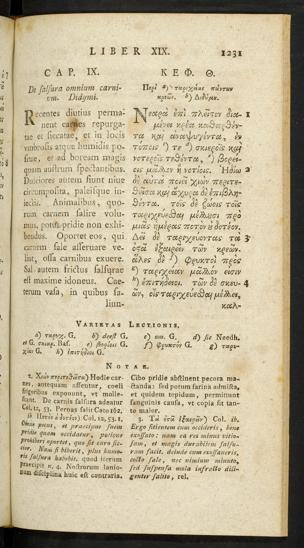 LIBER XIX.
1231
CAP. IX.
De salsura omnium carni-
um. Didymi.
Recentes diutius perma-
nent carnes repurga-
tae et siccatae, et in locis
umbrosis atque humidis po-
sitae, et ad boream magis
quam austrum spectantibus.
Dulciores autem fiunt niue
circumposita, paleisque in-
iectis. Animalibus, quo-
rum carnem salire volu-
mus, potus pridie non exhi-
bendus. Oportet eos, qui
carnem sale asseruare ve-
lint, ossa carnibus exuere.
Sal autem frictus salsurae
est maxime idoneus. Cae-
terum vasa, in quibus sa-
liun-
ΚΕΦ. Θ.
Περὶ ταριχείας πάντων
κρεῶν. Διδύμου.
Νεαρὰ ἐπὶ πλεῖστον δια- 1
μένει κρέα καθαρθέν-
τα καὶ ἀναψυγέντα, ἐν
τόποις
νοτεροῖς τεθέντα,
μᾶλλον ἢ νοτίοις. Ἡδίω 2
δὲ αὐτὰ ποιεῖ χιὼν περιτε-
θεῖσα καὶ ἄχυρα ἐπιβλη-
θέντα. τοῖς δὲ ζώοις τοῖς
ταριχεύεσθαι μέλλουσι πρὸ
μιᾶς ἡμέρας ποτὸν οὐ δοτέον.
Δεῖ δὲ ταριχεύοντας τὰ 3
ὀστᾶ ἐξαιρεῖν τῶν κρεῶν.
ἅλες δὲ φρυκτοὶ πρὸς
ταριχείαν μᾶλλόν εἰσιν
ἐπιτήδειοι. τῶν δὲ σκευ- 4
ῶν, οἷς ταριχεύεσθαι μέλλει,
καλ-
VARIETAS LECTIONIS.
NOTAE.
2. Χιὼν περιτεθεῖσα) Hodie car-
nes, antequam assentur, coeli
frigoribus exponunt, vt molle-
scant. De carnis salsura adeatur
Col. 12, 53. Pernas salit Cato 162.
Omne pecus, et praecipue suem
pridie quam occidatur, potione
prohiberi oportet, quo sit caro sic-
cior. Nam si biberit, plus humo-
ris salsura habebit. quod iterum
praecipit n. 4. Nostrorum lanio-
num disciplina huic est contraria.
Cibo pridie abstinent pecora ma-
ctanda: sed potum farina admista,
et quidem tepidum, permittunt
sanguinis caussa, vt copia sit tan-
to maior.
3. Τὰ ὀστᾶ ἐξαιρεῖν) Col. ib.
Ergo sitientem cum occideris, bene
exossato: nam ea res minus vitio-
sam, et magis durabilem salsu-
ram facit. deinde cum exossaueris,
cocto sale, nec nimium minuto,
sed suspensa mola infracto dili-
genter salito, rel.